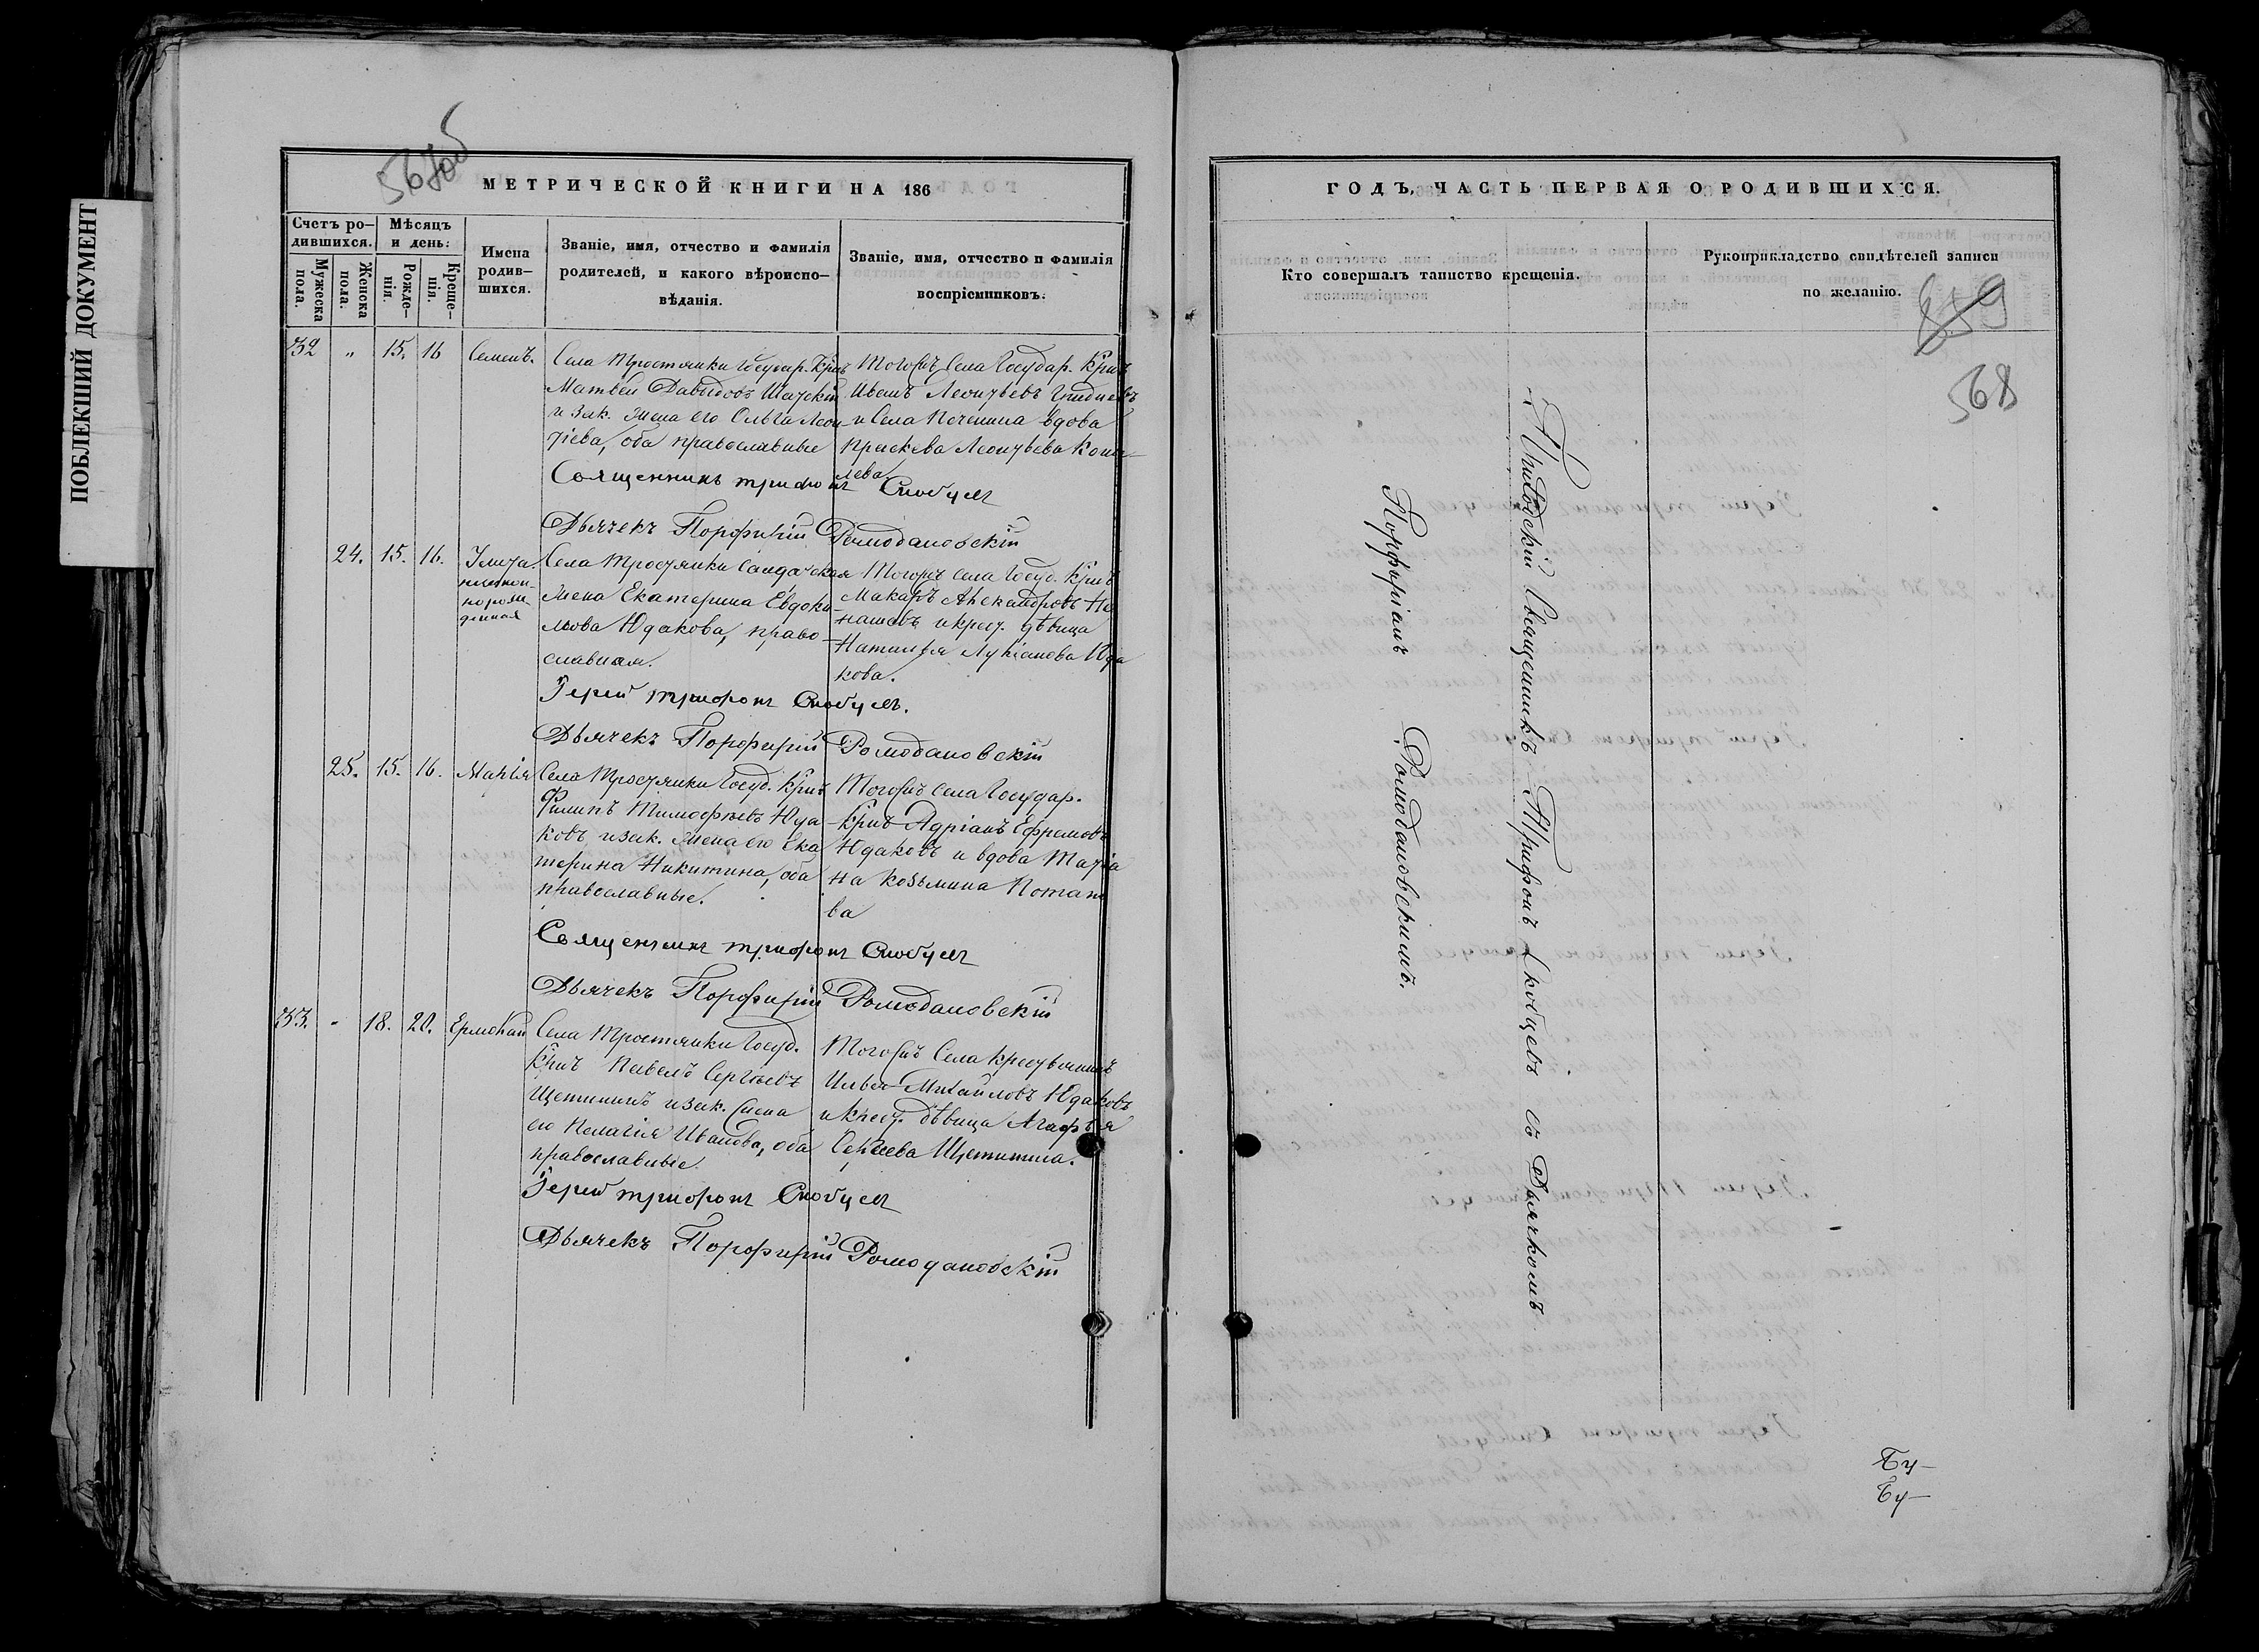 ПОБЛЕКШИЙ ДОКУМЕНТ
567об
МЕТРИЧЕСКОЙ КНИГИ НА 186
Счетъ ро-
дившихся.
Мѣсяцъ
и день:
Мужеска
пола.
Женска
пола.
Рожде-
нія.
Креще-
нія.
Имена
родив-
шихся.
Званіе, имя, отчество и фамилія
родителей, и какого вѣроиспо-
вѣданія.
Званіе, имя, отчество и фамилія
воспріемниковъ.
32 " 15. 16 Семенъ.
Села Тростянки Государ. Крнъ
Матвей Давыдовъ
и зак. жена его Ольга Леон-
тіева, оба православные
Тогожъ Села Государ. Крнъ
Иванъ Леонтьевъ
и Села вдова
Праскева Леонтьева
Священникъ Трифонъ Скобцевъ
Дьячекъ Порфирій Ромодановскій
24. 15. 16.
Села Тростянки Солдатская
жена Екатерина Евдоки-
мова Юдакова, право-
славная.
Тогожъ Села Госуд. Крнъ
Макаръ
и крест. дѣвица
Наталья Лукіанова Юда
кова.
Іерей Трифонъ Скобцевъ.
Дьячекъ Порфирій Ромодановскій
25. 15. 16. Марія
Села Тростянки Госуд. Крнъ
Филипъ Тимофѣевъ Юда
ковъ и зак. жена его Ека
терина Никитина, оба
православные.
Тогожъ Села Государ.
Крнъ Адріанъ Ефремовъ
Юдаковъ и вдова Татія
на Козьмина Потапо
ва
Священникъ Трифонъ Скобцевъ
Дьячекъ Порфирій Ромодановскій
33. " 18. 20. Ермолай
Села Тростянки Госуд.
Крнъ Павелъ Сергѣевъ
Щетининъ и зак. жена
его Пелагія Иванова, оба
православные.
Тогожъ Села крестьянинъ
Илья Михайловъ Юдаковъ
и крест. дѣвица Агафья
Сергѣева Щетинина.
Іерей Трифонъ Скобцевъ
Дьячекъ Порфирій Ромодановскій
ГОДЪ, ЧАСТЬ ПЕРВАЯ О РОДИВШИХСЯ.
Кто совершалъ таинство крещенія.
Рукоприкладство свидѣтелей записи
по желанію.
859
568
Приходскій Священникъ Трифонъ Скобцевъ съ Дьячкомъ
Порфиріемъ Ромодановскимъ.